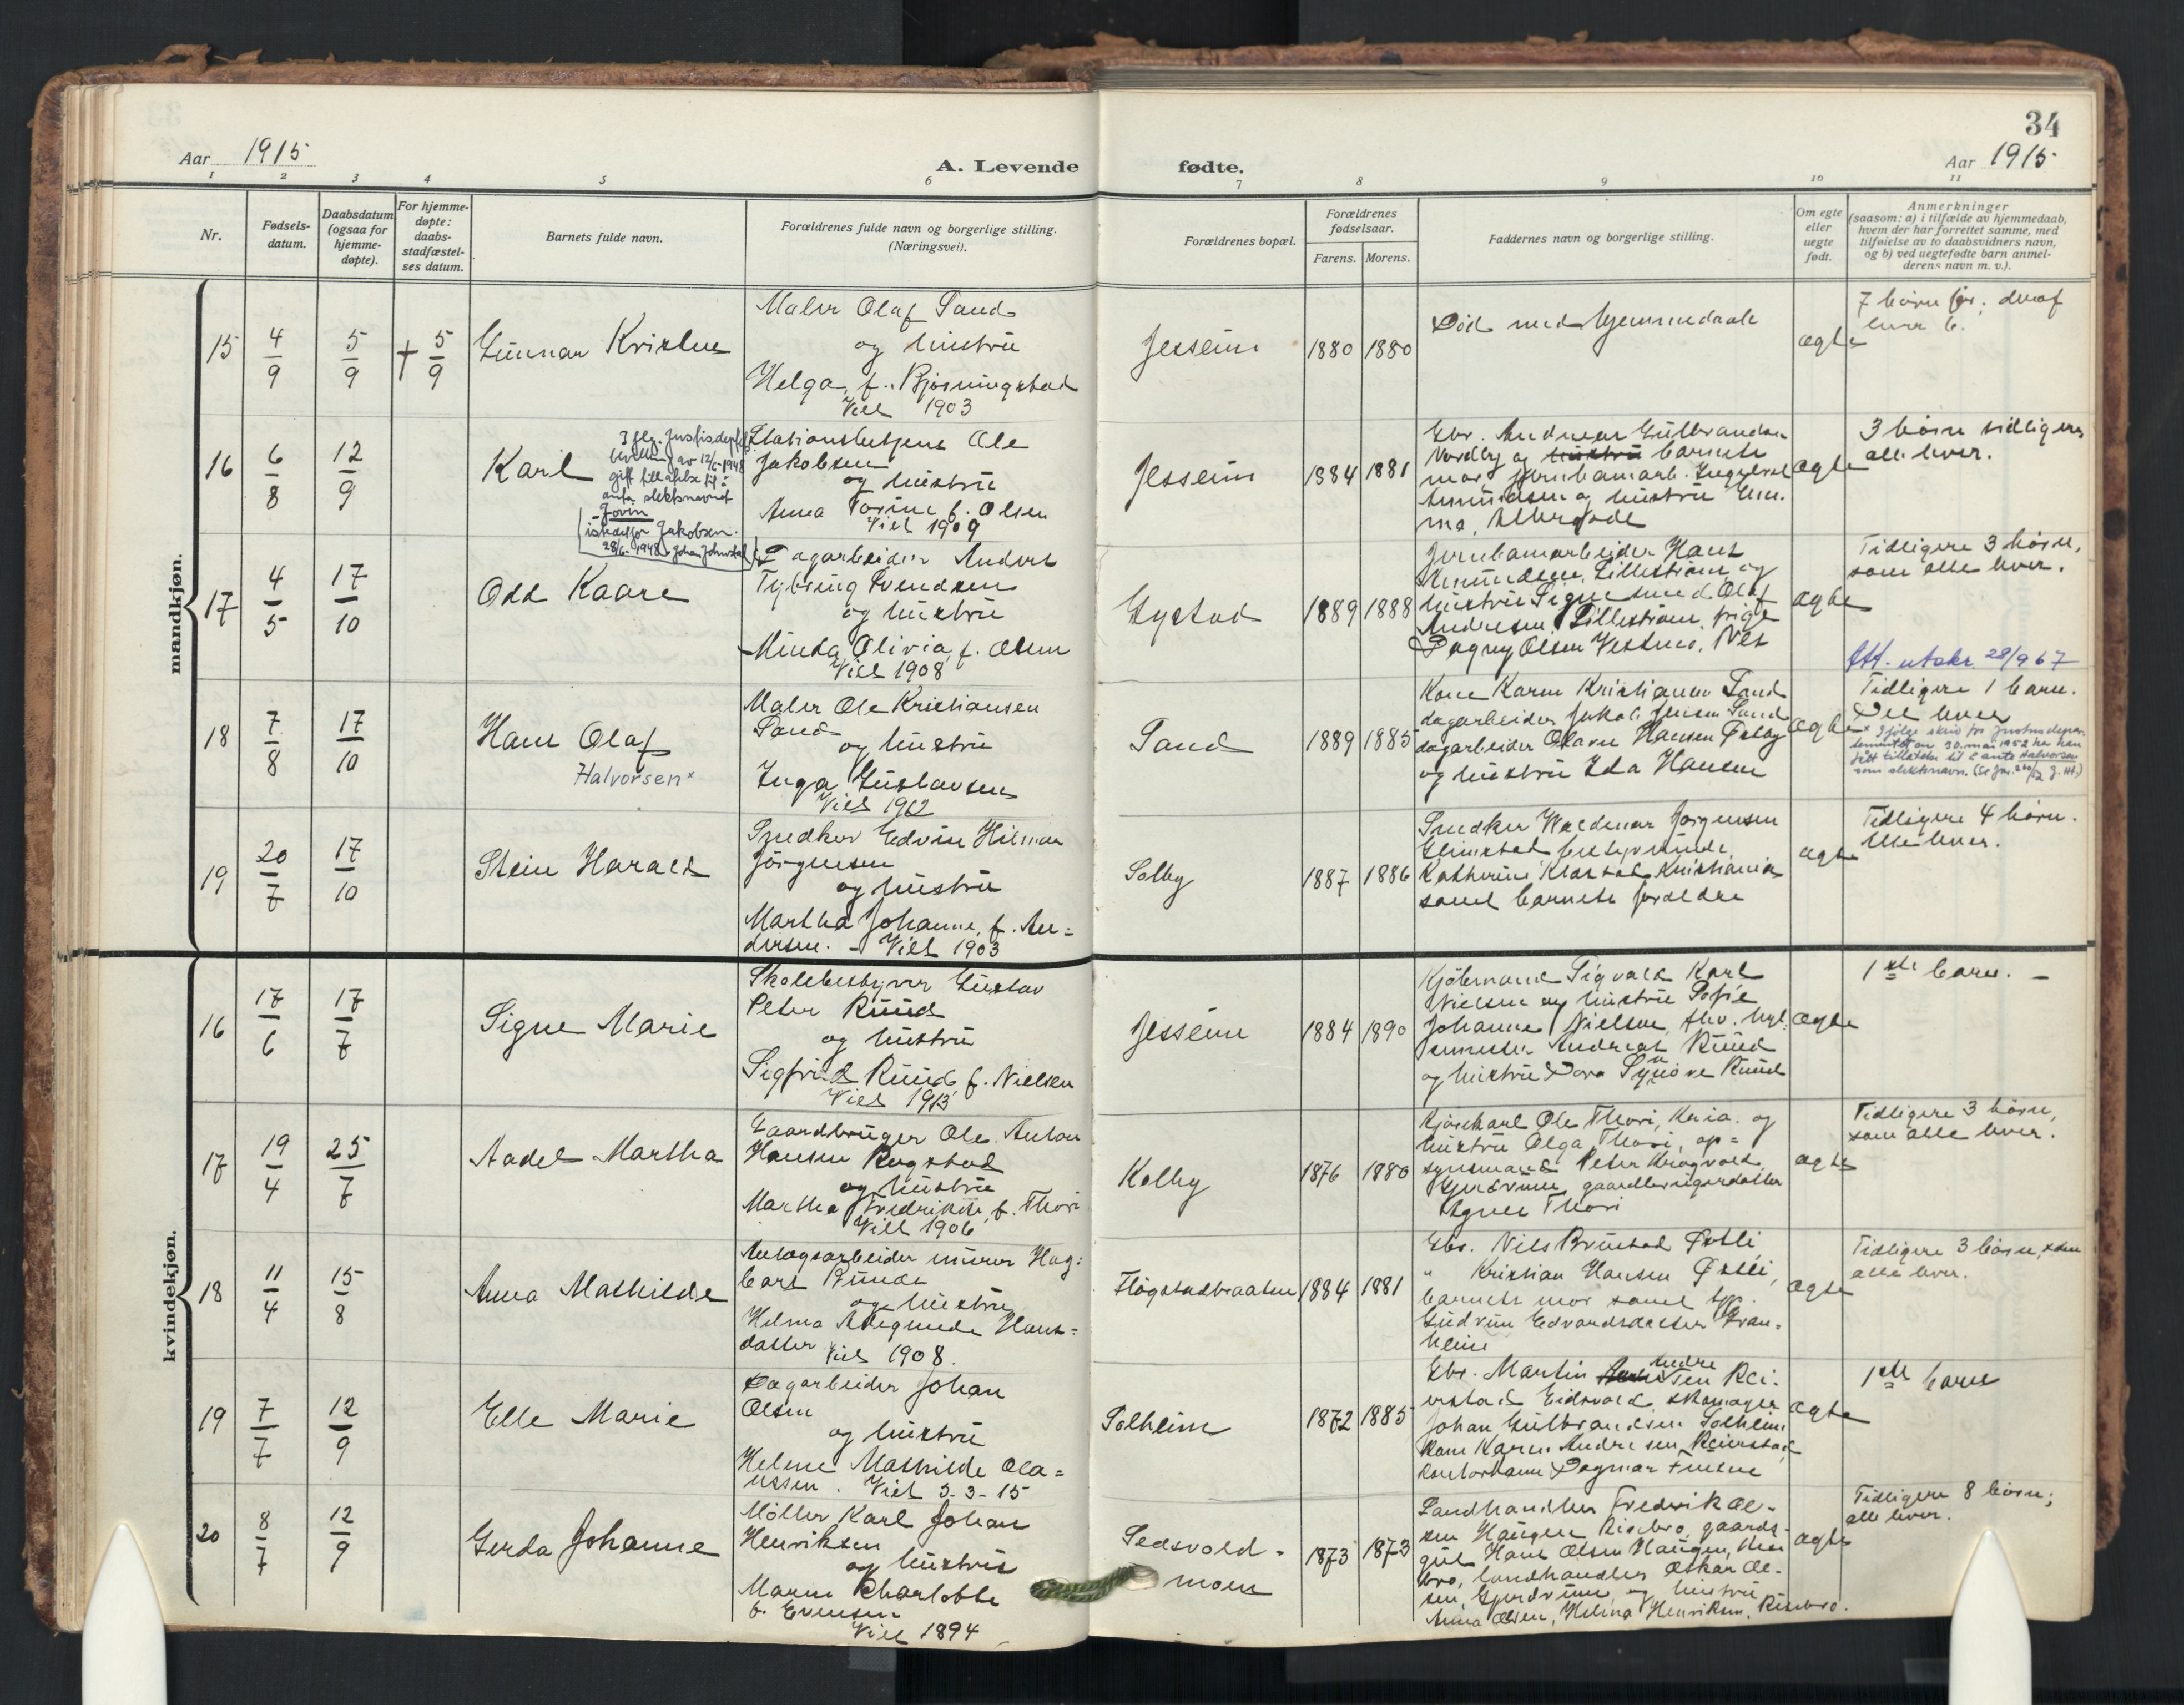 34
Aar 1915
A. Levende
fødte.
Aar 1915
1 2 3 4 5 6 7 8 9 10 11
Nr.
Fødsels-
datum.
Daabsdatum
(ogsaa for
hjemme-
døpte).
For hjemme-
døpte:
daabs-
stadfæstel-
ses datum.
Barnets fulde navn.
Forældrenes fulde navn og borgerlige stilling.
(Næringsvei).
Forældrenes bopæl.
Forældrenes
fødselsaar.
Farens. Morens.
Faddernes navn og borgerlige stilling.
Om egte
eller
uegte
født.
Anmerkninger
(saasom: a) i tilfælde av hjemmedaab,
hvem der har forrettet samme, med
tilføielse av to daabsvidners navn,
og b) ved uegtefødte barn anmel-
derens navn m. v.).
mandkjøn.
15
4/9
5/9
† 5/9
Gunnar
Maler Olaf Sand
og hustru
Helga, f. Bjørningstad
Viel 1903
Jesseim
1880 1880
Død med hjemmedaab
ægte
7 børn før; deraf
lever 6.
16
6/8
12/9
Karl
I flg. Justisdep.
av 12/6-1948
gitt tillatelse til å
anta slektsnavnet
Jovin
istedetfor Jakobsen.
28/6-1948
Stationsbetjent Ole
Jakobsen
og hustru
Anna Torine f. Olsen
Viel 1909
Jesseim
1884 1881
Gbr. Andreas Gulbrandsen
Nordby og hustru barnets
mor jernbanearb. Ingvald
Amundsen og hustru Em-
ma,
ægte
3 børn tidligere
alle lever.
17
4/5
17/10
Odd Kaare
Dagarbeider Anders
Tybring Svendsen
og hustru
Minda Olivia, f. Olsen
Viel 1908
Gystad
1889 1888
Jernbanearbeider Hans
Amundsen, Lillestrøm og
hustru Signe smed Olaf
Andresen, Lillestrøm, pige
Dagny Olsen Vestmo, Nes
ægte
Tidligere 3 børn,
som alle lever.
18
7/8
17/10
Hans Olaf
Halvorsen×
Maler Ole Kristiansen
Sand
og hustru
Inga Gustavsen
Viel 1912
Sand
1889 1885
Kone Karen Kristiansen Sand
dagarbeider Jakob Jensen Sand
dagarbeider Olaves Hansen Østby
og hustru Ida Hansen
ægte
Att. utskr. 28/9 67
Tidligere 1 barn.
Det lever
× Ifølge skriv fra Justisdepar-
tementet av 30. mai 1952 har han
fått tillatelse til å anta Halvorsen
som slektsnavn.
19
20/7
17/10
Stein Harald
Snedker Edvin Hilmar
Jørgensen
og hustru
Martha Johanne, f. An-
dersen. - Viel 1903
Solby
1887 1886
Snedker Waldemar Jørgensen
Glimstad bestyrerinde
Katherine Klarstad Kristiania
samt barnets forældre
ægte
Tidligere 4 børn.
Alle lever.
kvindekjøn.
16
17/6
17/7
Signe Marie
Skolebestyrer Gustav
Peter Ruud
og hustru
Sigfrid Ruud, f. Nielsen
Viel 1913
Jesseim
1884 1890
Kjøbmand Sigvald Karl
Nielsen og hustru Sofie
Johanne Nielsen,
Andreas Ruud
og hustru Dora Synnøve Ruud
ægte
1ste barn. -
17
19/4
25/7
Aadel Martha
Gaardbruger Ole Anton
Hansen Rogstad
og hustru
Martha Fredrikke, f. Thori
Viel 1906
Kolby
1876 1880
Kjørekarl Ole Thori, Kr.ia. og
hustru Olga Thori, op-
synsmand Peter Krogvold
Gjerdrum, gaardbrugerdatter
Agnes Thori
ægte
Tidligere 3 børn,
som alle lever.
18
11/4
15/8
Anna Mathilde
Anlægsarbeider murer Hag-
bart Bunde
og hustru
Helma Adegunde Hans-
datter Viel 1908.
Fløgstadbraaten
1884 1881
Gbr. Nils Brustad Østli
" Kristian Hansen Østli,
barnets mor samt
Gudrun Edvardsdatter Tran-
heim
ægte
Tidligere 3 børn, som
alle lever.
19
7/7
12/9
Elle Marie
Dagarbeider Johan
Olsen
og hustru
Helene Mathilde Ola-
ussen. Viet 3-3-15
Solheim
1872 1885
Gbr. Martin Andre Rei-
erstad Eidsvold, skomager
Johan Gulbrandsen Solheim
kone Karen Andresen Reierstad
Dagmar
ægte
1ste barn
20
8/7
12/9
Gerda Johanne
Møller Karl Johan
Henriksen
og hustru
Maren Charlotte
f. Evensen
Viel 1894
Sedsvold-
moen
1873 1873
Landhandler Fredrik Ol-
sen Haugen Risebro, gaards-
gut Hans Olsen Haugen, Rise
bro, landhandler Oskar Ol-
sen, Gjerdrum og hustru
Anna Olsen, Helena Henriksen, Risebro.
ægte
Tidligere 8 børn;
alle lever.